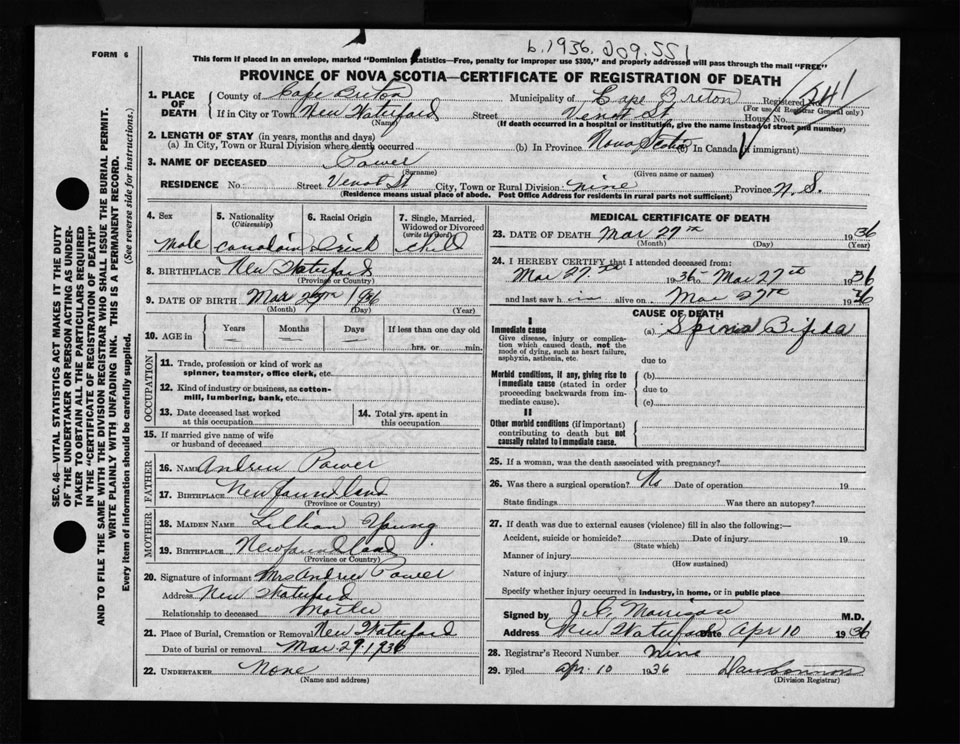 b.1936. 209.551
FORM 6
This form if placed in an envelope, marked "Dominion Statistics—Free, penalty for improper use $300," and properly addressed will pass through the mail "FREE"
PROVINCE OF NOVA SCOTIA—CERTIFICATE OF REGISTRATION OF DEATH
1. PLACE OF DEATH { County of Cape Breton Municipality of Cape Breton Registered No.
(For use of Registrar General only)
If in City or Town New Waterford Street Venot St House No.
(Name) (If death occurred in a hospital or institution, give the name instead of street and number)
2. LENGTH OF STAY (in years, months and days)
(a) In City, Town or Rural Division where death occurred (b) In Province Nova Scotia (c) In Canada (if immigrant)
3. NAME OF DECEASED Power
(Surname) (Given name or names)
RESIDENCE No. Street Venot St City, Town or Rural Division nine Province N. S.
(Residence means usual place of abode. Post Office Address for residents in rural parts not sufficient)
4. Sex 5. Nationality (Citizenship) 6. Racial Origin 7. Single, Married, Widowed or Divorced (write the word)
Male Canadain Irish Child
8. BIRTHPLACE New Waterford
(Province or Country)
9. DATE OF BIRTH Mar 27th 1936
(Month) (Day) (Year)
10. AGE in { Years Months Days If less than one day old
hrs. or min.
OCCUPATION
11. Trade, profession or kind of work as spinner, teamster, office clerk, etc.
12. Kind of industry or business, as cotton-mill, lumbering, bank, etc.
13. Date deceased last worked at this occupation
14. Total yrs. spent in this occupation
15. If married give name of wife or husband of deceased
FATHER
16. NAME Andrew Power
17. BIRTHPLACE Newfoundland
(Province or Country)
MOTHER
18. MAIDEN NAME Lillian Young
19. BIRTHPLACE Newfoundland
(Province or Country)
20. Signature of informant Mrs Andrew Power
Address New Waterford
Relationship to deceased Mother
21. Place of Burial, Cremation or Removal New Waterford
Date of burial or removal Mar 29. 1936
22. UNDERTAKER None
(Name and address)
MEDICAL CERTIFICATE OF DEATH
23. DATE OF DEATH Mar 27th 1936
(Month) (Day) (Year)
24. I HEREBY CERTIFY that I attended deceased from:
Mar 27th 1936 to Mar 27th 1936
and last saw him alive on Mar 27th 1936
CAUSE OF DEATH
I
Immediate cause (a) Spina Bifida
Give disease, injury or complication which caused death, not the mode of dying, such as heart failure, asphyxia, asthenia, etc.
due to
Morbid conditions, if any, giving rise to immediate cause (stated in order proceeding backwards from immediate cause).
(b)
due to
(c)
II
Other morbid conditions (if important) contributing to death but not causally related to immediate cause.
25. If a woman, was the death associated with pregnancy?
26. Was there a surgical operation? No Date of operation 19
State findings Was there an autopsy?
27. If death was due to external causes (violence) fill in also the following:—
Accident, suicide or homicide? Date of injury 19
(State which)
Manner of injury
(How sustained)
Nature of injury
Specify whether injury occurred in industry, in home, or in public place
Signed by J. C. Morrison M.D.
Address New Waterford Date Apr 10 1936
28. Registrar's Record Number nine
29. Filed apr. 10 1936
(Division Registrar)
SEC. 46—VITAL STATISTICS ACT MAKES IT THE DUTY
OF THE UNDERTAKER OR PERSON ACTING AS UNDER-
TAKER TO OBTAIN ALL THE PARTICULARS REQUIRED
IN THE "CERTIFICATE OF REGISTRATION OF DEATH"
AND TO FILE THE SAME WITH THE DIVISION REGISTRAR WHO SHALL ISSUE THE BURIAL PERMIT.
WRITE PLAINLY WITH UNFADING INK. THIS IS A PERMANENT RECORD.
Every item of information should be carefully supplied. (See reverse side for instructions.)